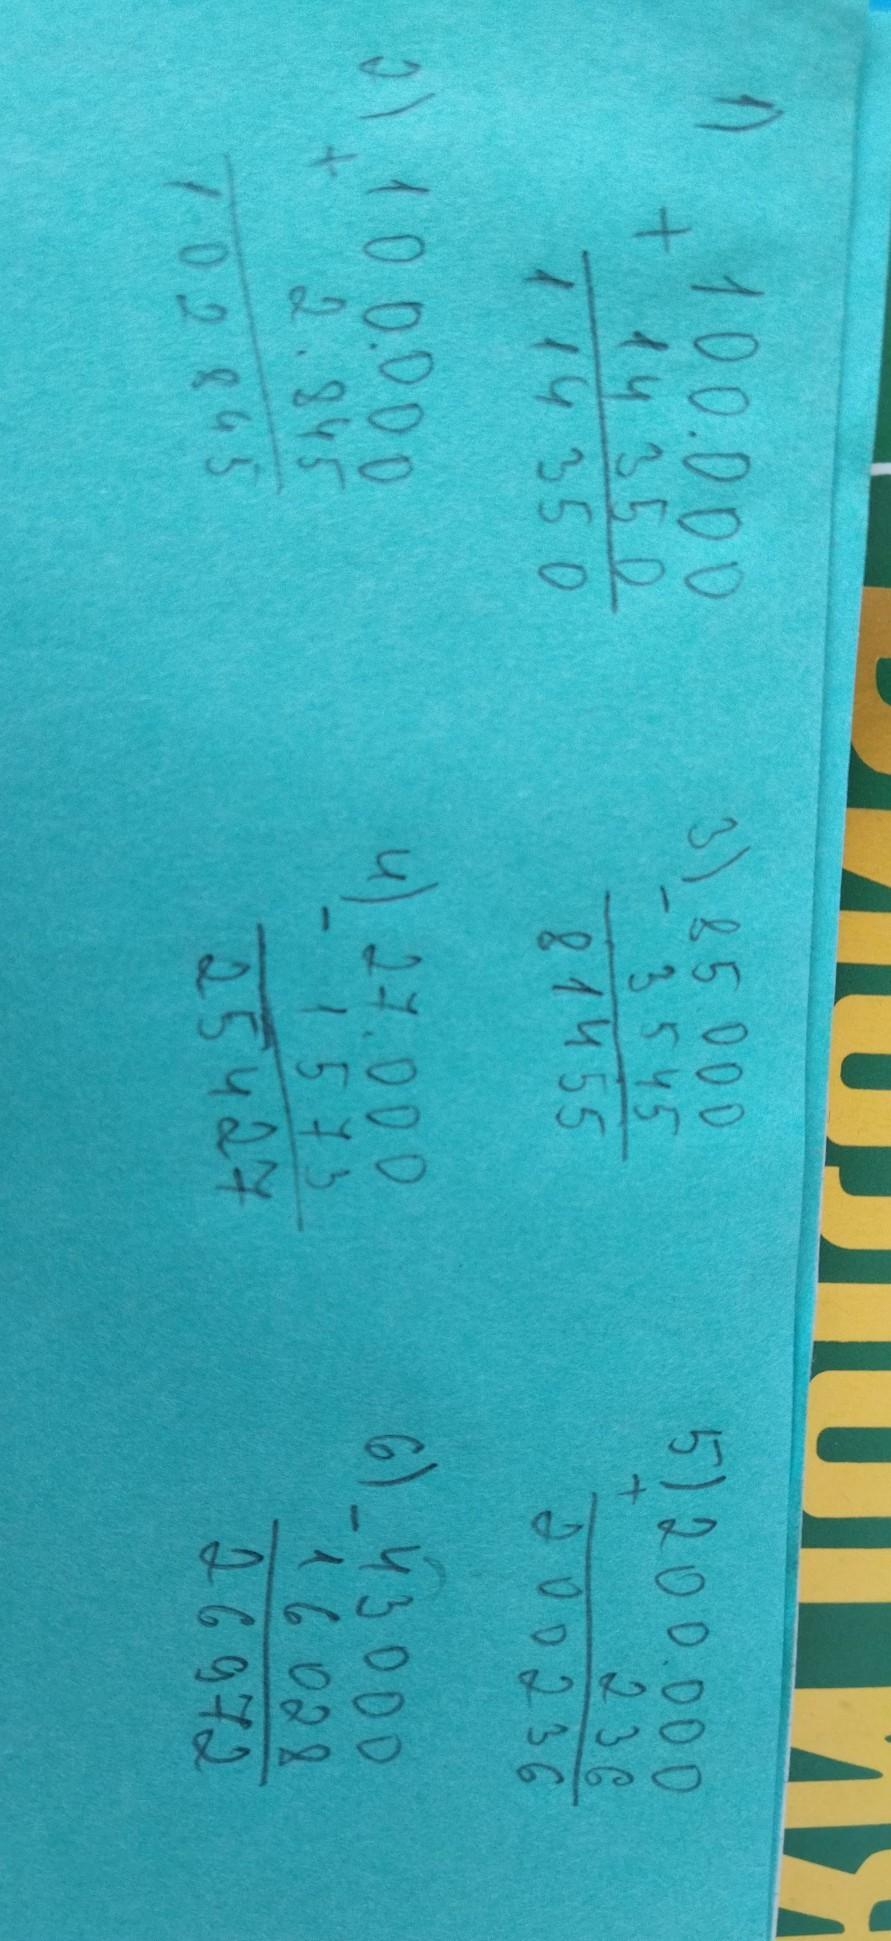 1)
+ 100.000
14350
114350
2)
+ 100.000
2.845
102845
3) 85000
- 3545
81455
4) 27.000
- 1573
25427
5) 200.000
+ 236
200236
6) 43000
- 16028
26972